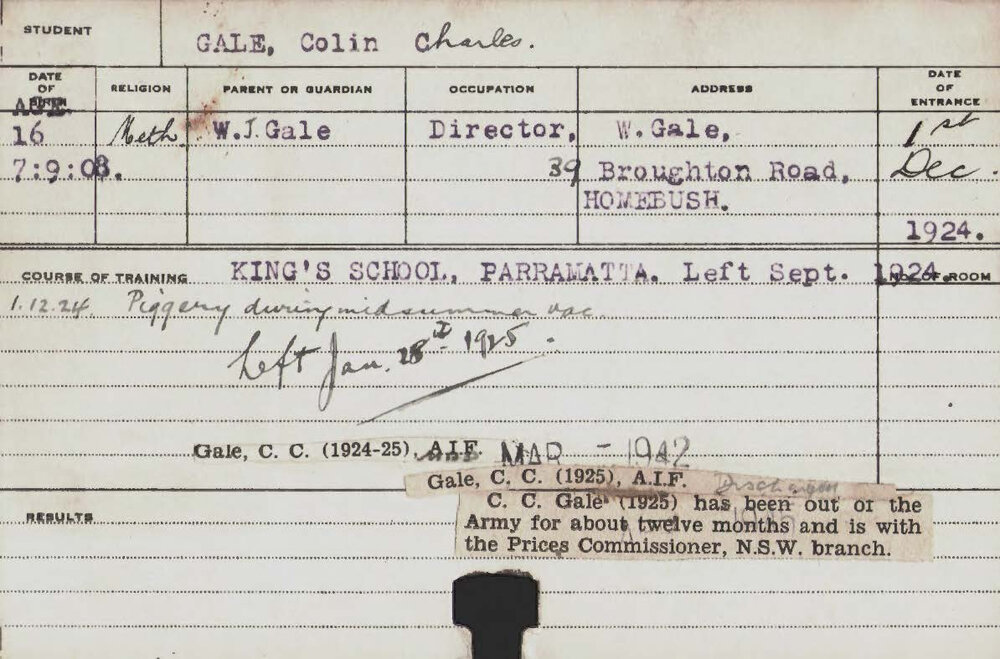 STUDENT
GALE, Colin Charles.
DATE OF BIRTH
RELIGION
PARENT OR GUARDIAN
OCCUPATION
ADDRESS
DATE OF ENTRANCE
AGE
16
Meth.
W.J.Gale
Director,
W.Gale,
1st
7:9:08.
39 Broughton Road,
Dec.
HOMEBUSH.
1924.
COURSE OF TRAINING
KING'S SCHOOL, PARRAMATTA. Left Sept. 1924.
NO. OF ROOM
1.12.24. Piggery during midsummer vac.
Left Jan. 28 1925.
Gale, C. C. (1924-25), A.I.F. MAR - 1942
Gale, C. C. (1925), A.I.F.
C. C. Gale (1925) has been out of the
RESULTS
Army for about twelve months and is with
the Prices Commissioner, N.S.W. branch.